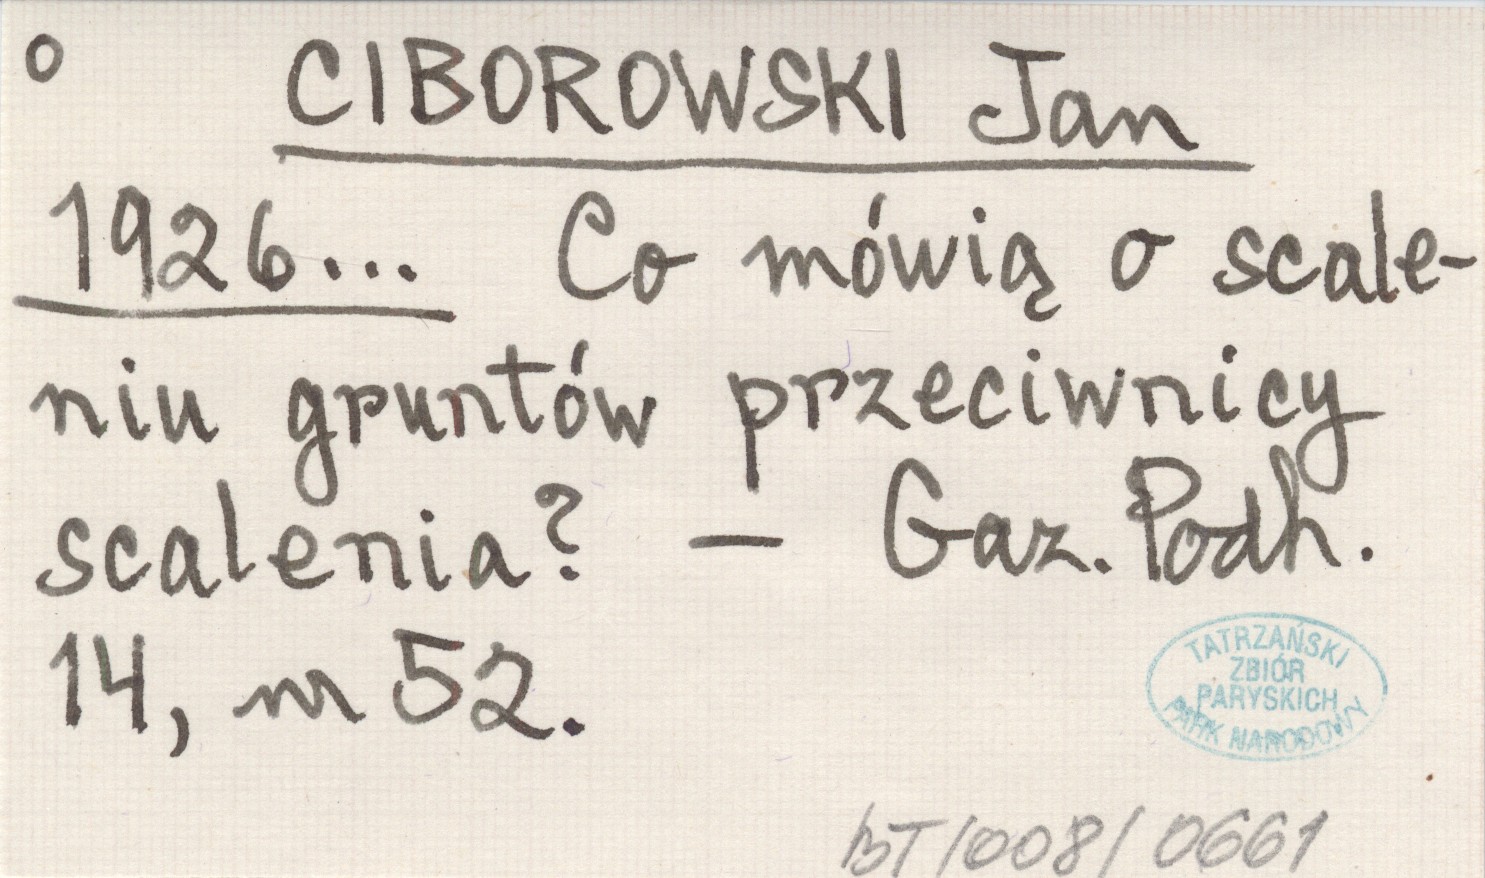 o CIBOROWSKI Jan
1926... Co mówią o scale-
niu gruntów przeciwnicy
scalenia? — Gaz. Podh.
14, nr 52.
TATRZAŃSKI
ZBIÓR
PARYSKICH
PARK NARODOWY
BT/008/0661